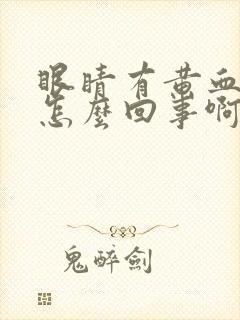 眼睛有黃血
怎麼回事啊
鬼醉劍